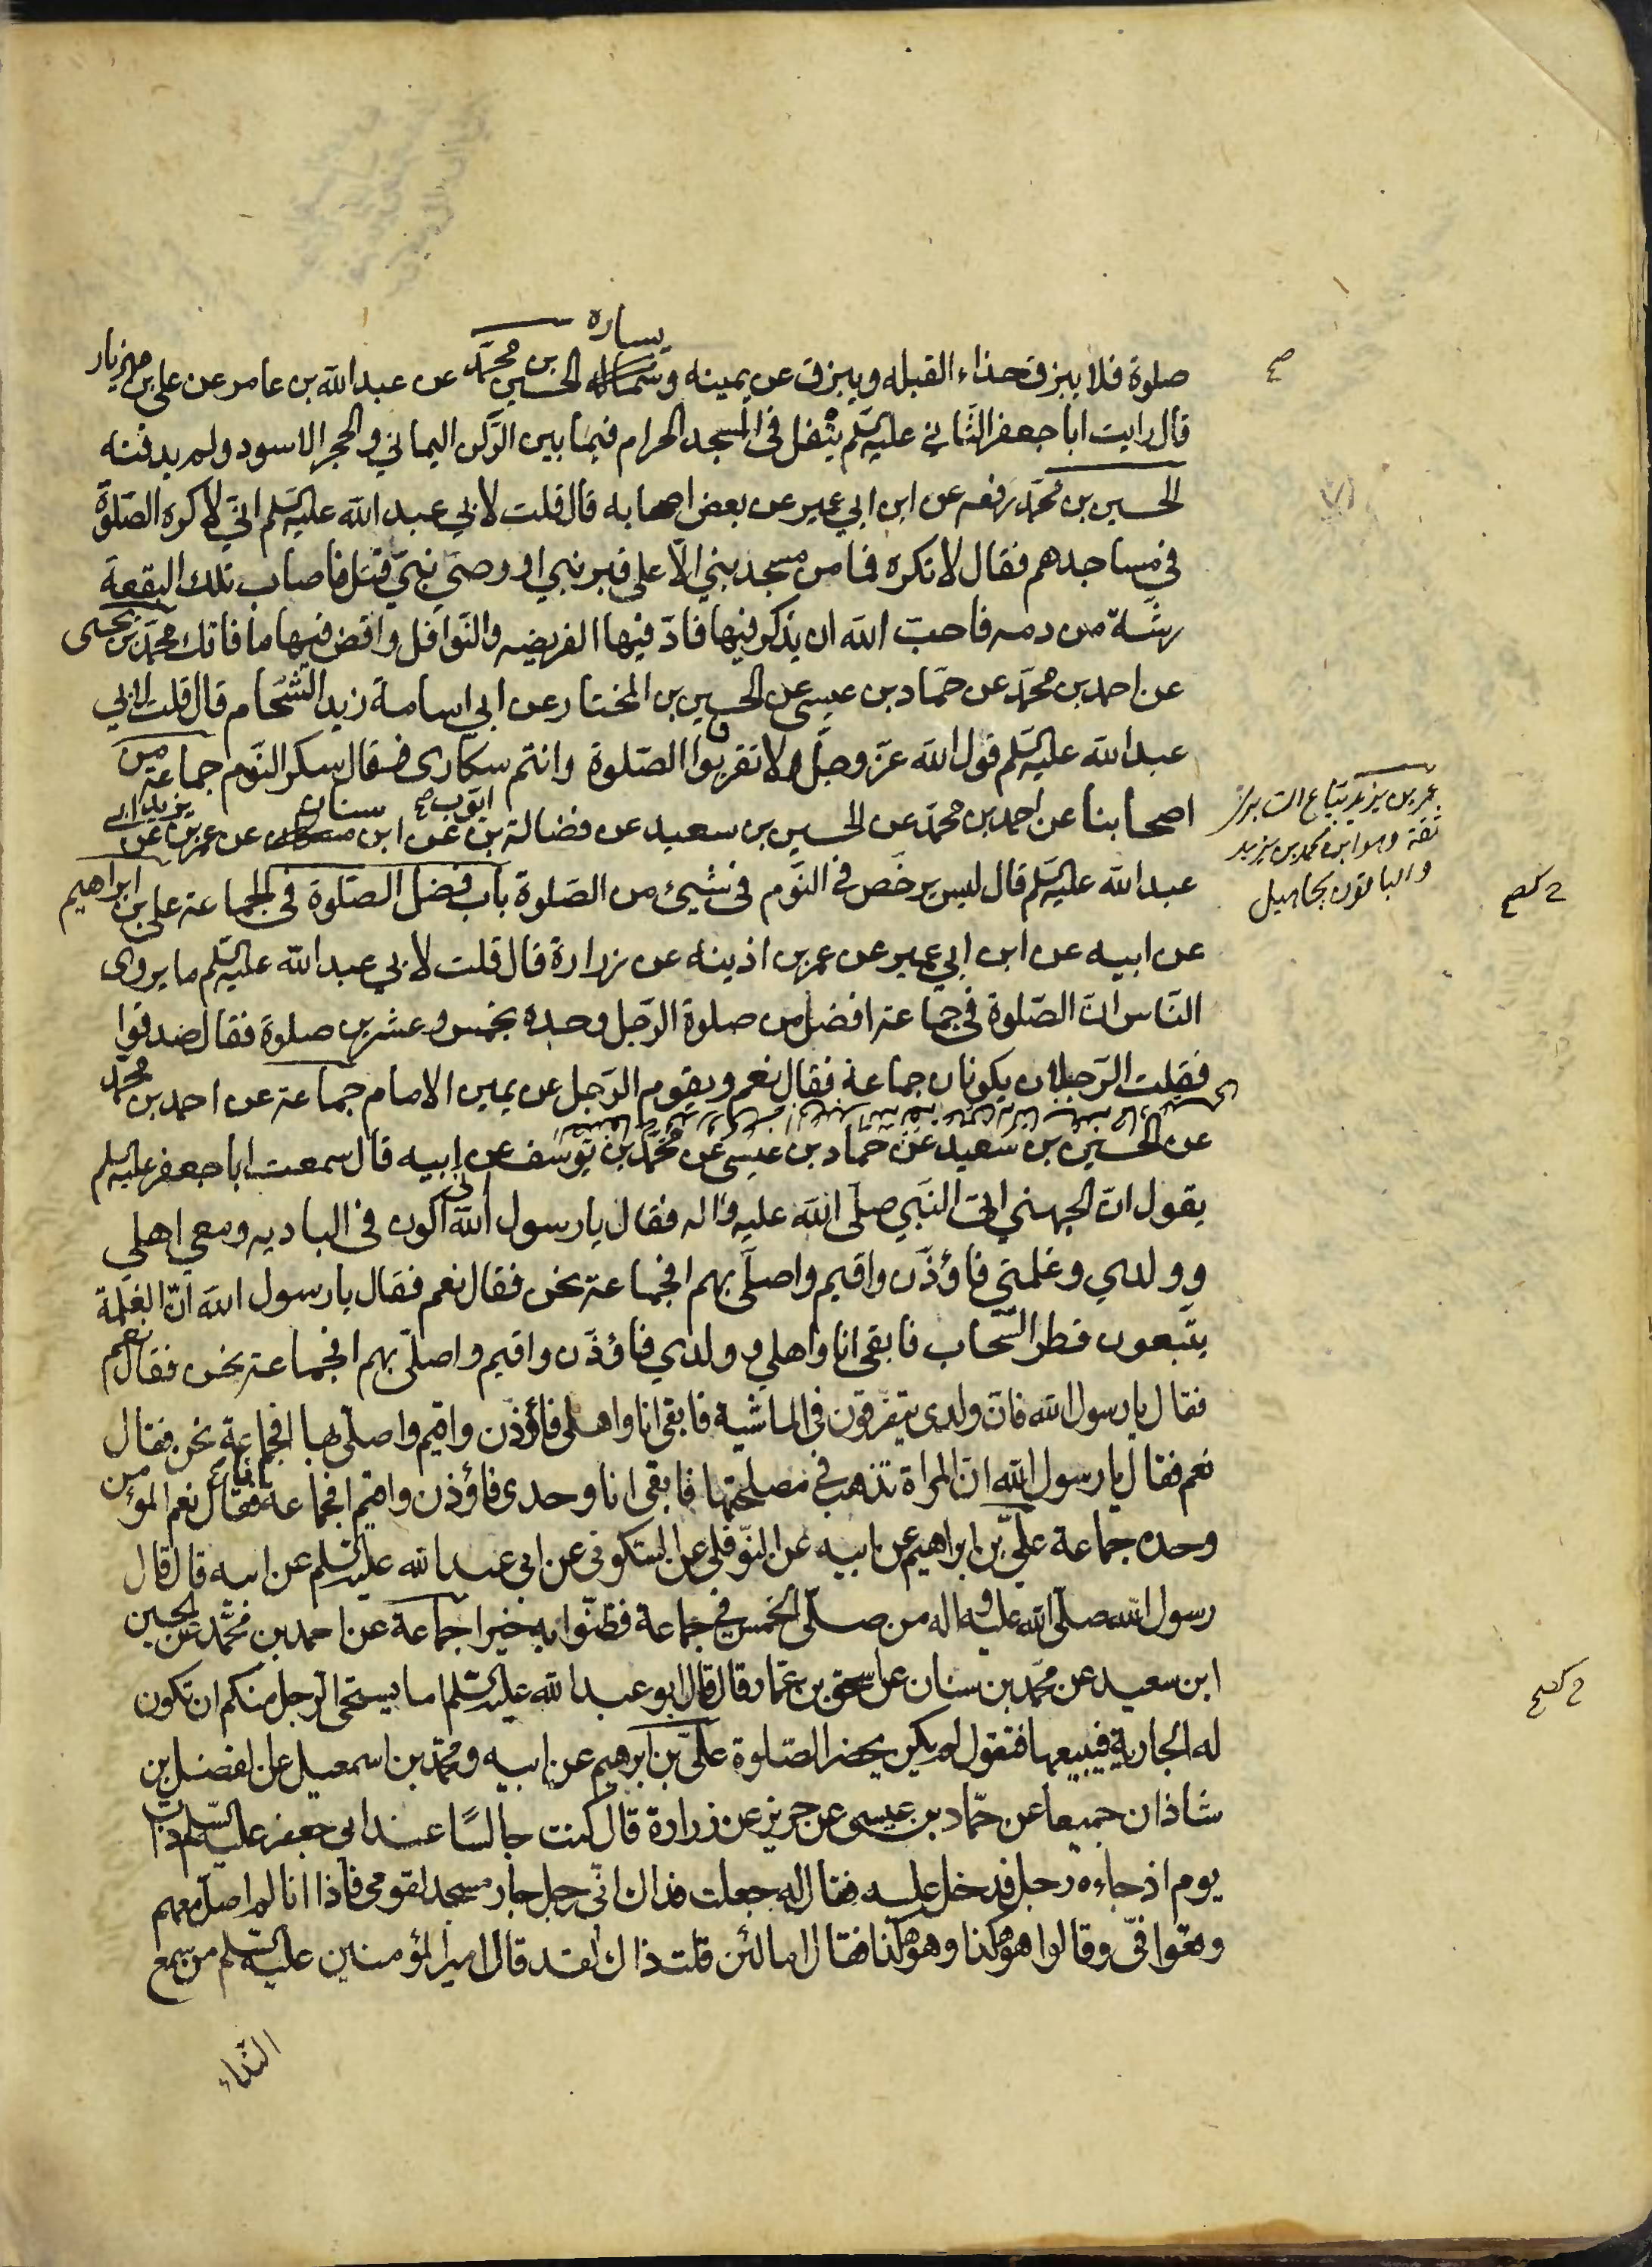 يساره
صلوة فلا يبزق حذاء القبله ويبزق عن يمينه وشماله الحسين بن محمّد عن عبدالله بن عامر عن علي بن مهزيار
قال رايت ابا جعفر الثّاني عليه السّلم يتفل في المسجد الحرام فيما بين الرّكن اليماني والحجر الاسود ولم يدفنه
الحسين بن محمّد رفعه عن ابن ابي عمير عن بعض اصحابه قال قلت لابي عبد الله عليه السّلم انّي لاكره الصّلوة
في مساجدهم فقال لا تكره فما من مسجد بني الّا على قبر نبي او وصيّ نبيّ قتل فاصاب تلك البقعة
رشّة من دمه فاحبّ الله ان يذكر فيها فادّ فيها الفريضه والنّوافل واقض فيها ما فاتك محمّد بن يحيى
عن احمد بن محمّد عن حمّاد بن عيسى عن الحسين بن المختار عن ابي اسامة زيد الشّحّام قال قلت لابي
عبد الله عليه السّلم قول الله عزّ وجلّ ولا تقربوا الصّلوة وانتم سكارى فقال سكر النّوم جماعة من
اصحابنا عن احمد بن محمّد عن الحسين بن سعيد عن فضالة بن ايّوب عن ابن سنان عن عمر بن يزيد عن ابي
عبد الله عليه السّلم قال ليس يرخّص في النّوم في شيئ من الصّلوة باب فضل الصّلوة في الجماعة علي بن ابراهيم
عن ابيه عن ابن ابي عمير عن عمر بن اذينه عن زرارة قال قلت لابي عبد الله عليه السّلم ما يروى
النّاس انّ الصّلوة في جماعة افضل من صلوة الرّجل وحده بخمس وعشرين صلوة فقال صدقوا
فقلت الرّجلان يكونان جماعة فقال نعم ويقوم الرّجل عن يمين الامام جماعة عن احمد بن محمّد
عن الحسين بن سعيد عن حماد بن عيسى عن محمّد بن يوسف عن ابيه قال سمعت ابا جعفر عليه السلم
يقول انّ الجهني اتى النّبي صلّى الله عليه واله فقال يا رسول الله انّى اكون في الباديه ومعي اهلي
وولدي وغلمتي فاؤذّن واقيم واصلّى بهم افجماعة نحن فقال نعم فقال يا رسول الله انّ الغلمة
يتّبعون قطر السّحاب فابقى انا واهلي وولدي فاؤذّن واقيم واصلّى بهم افجماعة نحن فقال نعم
فقال يا رسول الله فانّ ولدى يتفرّقون في الماشية فابقى انا واهلى فاؤذّن واقيم واصلّى بها افجماعة نحن فقال
نعم فقال يا رسول الله انّ المراة تذهب في مصلحتها فابقى انا وحدى فاؤذن واقيم افجماعة انا فقال نعم المؤمن
وحده جماعة عليّ بن ابراهيم عن ابيه عن النّوفلي عن السّكوني عن ابي عبد الله عليه السّلم عن ابيه قال قال
رسول الله صلّى الله عليه واله من صلّى الخمس في جماعة فظنّوا به خيرا جماعة عن احمد بن محمّد عن الحسين
ابن سعيد عن محمّد بن سنان عن اسحق بن عمّار قال قال ابو عبد الله عليه السّلم اما يستحى الرّجل منكم ان تكون
له الجارية فيبيعها فتقول لم يكن يحضر الصّلوة عليّ بن ابرهيم عن ابيه ومحمّد بن اسمعيل عن الفضل بن
شاذان جميعا عن حمّاد بن عيسى عن حريز عن زرارة قال كنت جالسًا عند ابي جعفر عليه السّلم ذات
يوم اذ جاءه رجل فدخل عليه فقال له جعلت فداك انّى رجل جار مسجد لقومى فاذا انا لم اصلّ معهم
وقعوا فيّ وقالوا هو هكذا وهو هكذا فقال اما لئن قلت ذاك لقد قال امير المؤمنين عليه السّلم من سمع
النّداء
صح
عمر بن يزيد بيّاع السابرى
ثقة وهو ابن محمد بن يزيد
والباقون مجاهيل